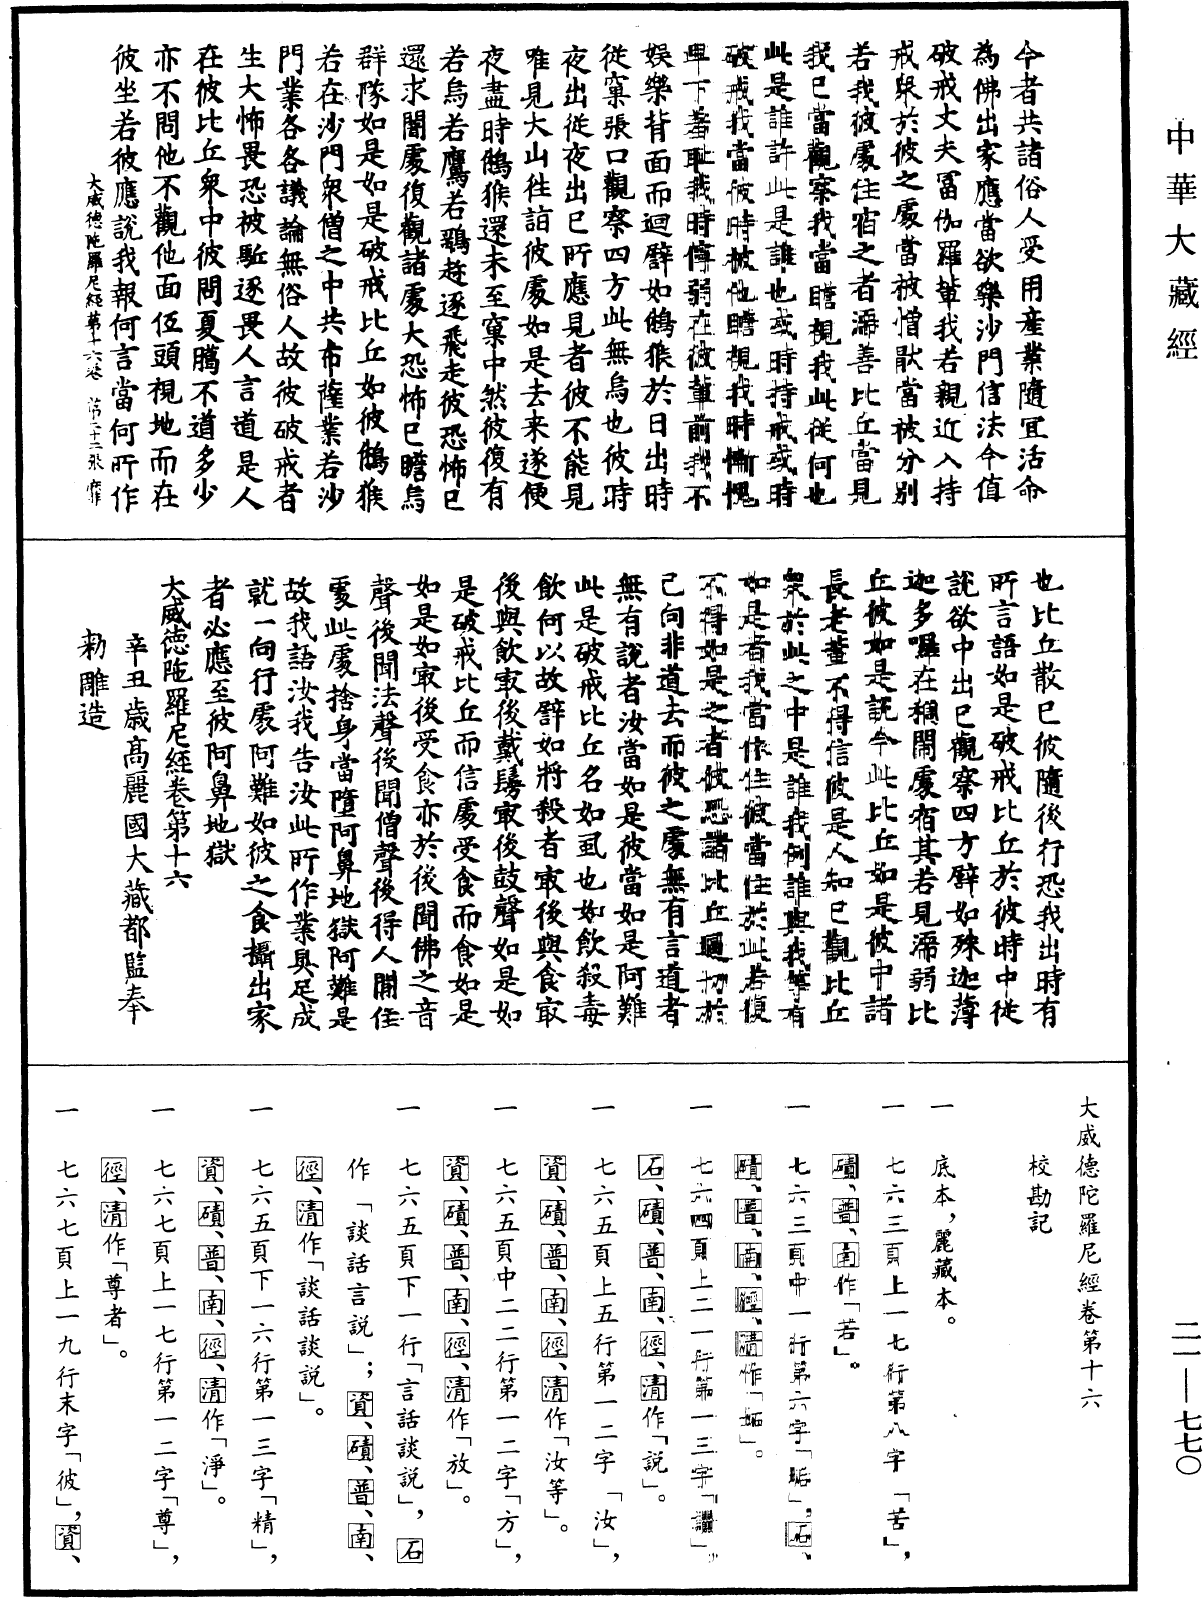 中華大藏經
今者共諸俗人受用產業隨宜活命
為佛出家應當欲樂沙門信法今值
破戒丈夫冨伽羅輩我若親近入持
戒衆於彼之處當被憎猒當被分別
若我彼處住宿之者濡善比丘當見
我已當觀察我當瞻視我此從何也
此是誰許此是誰也或時持戒或時
破戒我當彼時被他瞻視我時慚愧
卑下羞耻我時儜弱在彼輩前我不
娛樂背面而迴譬如鵂猴於日出時
從窠張口觀察四方此無烏也彼時
夜出從夜出已所應見者彼不能見
唯見大山往詣彼處如是去来遂便
夜盡時鵂猴還未至窠中然彼復有
若烏若鷹若鷄趂逐飛走彼恐怖已
還求闇處復觀諸處大恐怖已瞻烏
群隊如是如是破戒比丘如彼鵂猴
若在沙門衆僧之中共布薩業若沙
門業各各議論無俗人故彼破戒者
生大怖畏恐被駈逐畏人言道是人
在彼比丘衆中彼問夏臈不道多少
亦不問他不觀他面伍頭視地而在
彼坐若彼應說我報何言當何所作
大威德陁羅尼經第十六卷 第二十二張 靡
也比丘散已彼隨後行恐我出時有
所言語如是破戒比丘於彼時中從
說欲中出已觀察四方譬如殊迦薄
迦多囉在稠閙處宿其若見濡弱比
丘彼如是說今此比丘如是彼中諸
長老輩不得信彼是人知已觀比丘
衆於此之中是誰我例誰與我等有
如是者我當依住彼當住於此若復
不得如是之者彼恐諸比丘逼切於
己向非道去而彼之處無有言道者
無有說者汝當如是彼當如是阿難
此是破戒比丘名如虱也如飲殺毒
飲何以故譬如將殺者宼後與食宼
後與飲宼後戴鬘宼後鼓聲如是如
是破戒比丘而信處受食而食如是
如是如宼後受食亦於後聞佛之音
聲後聞法聲後聞僧聲後得人間住
處此處捨身當墮阿鼻地獄阿難是
故我語汝我告汝此所作業具足成
就一向行處阿難如彼之食攝出家
者必應至彼阿鼻地獄
大威德陁羅尼經卷第十六
辛丑歲高麗國大藏都監奉
勅雕造
大威德陀羅尼經卷第十六
校勘記
一 底本，麗藏本。
一 七六三頁上一七行第八字「苦」，
磧、普、南作「若」。
一 七六三頁中一行第六字「垢」，石、
磧、普、南、徑、清作「妬」。
一 七六四頁上二一行第一三字「讚」，
石、磧、普、南、徑、清作「說」。
一 七六五頁上五行第一二字「汝」，
資、磧、普、南、徑、清作「汝等」。
一 七六五頁中二二行第一二字「方」，
資、磧、普、南、徑、清作「放」。
一 七六五頁下一行「言話談說」，石
作「談話言說」；資、磧、普、南、
徑、清作「談話談說」。
一 七六五頁下一六行第一三字「精」，
資、磧、普、南、徑、清作「淨」。
一 七六七頁上一七行第一二字「尊」，
徑、清作「尊者」。
一 七六七頁上一九行末字「彼」，資、
二一—七七〇